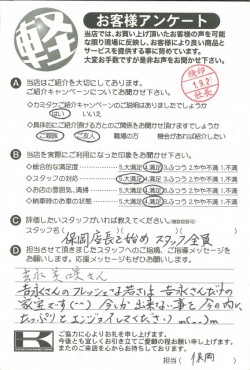 軽
お客様アンケート
当店では、お買い上げ頂いたお客様の声を可能
な限り現場に反映し、お客様により良い商品と
サービスを提供する事に努めています。
大変お手数ですが是非お声をお聞かせ下さい。
検印
社長
A 当店はご紹介を大切にしております。
ご紹介キャンペーンについてお聞かせ下さい。
◇カミタケご紹介キャンペーンのご説明はありましたでしょうか
はい いいえ
◇具体的にご紹介頂ける方とのご関係をお聞かせ頂けますでしょうか
ご親族 ご友人 職場の方 機会があれば紹介したい
B 当店を実際にご利用になった印象をお聞かせ下さい。
◇総合的な満足度 5.大満足 4.満足 3.ふつう 2.やや不満 1.不満
◇スタッフの対応 5.大満足 4.満足 3.ふつう 2.やや不満 1.不満
◇お店の雰囲気、清掃 5.大満足 4.満足 3.ふつう 2.やや不満 1.不満
◇納車時のお車の状態 5.大満足 4.満足 3.ふつう 2.やや不満 1.不満
C 評価したいスタッフがいれば教えてください。(複数回答可)
スタッフ名( 保岡店長を始め スタッフ全員 )
D 担当させて頂きましたスタッフへのご指摘、ご指導、メッセージを
お願いします。応援メッセージもぜひお願いします。
吉永 美咲さん
吉永さんのフレッシュな若さは 吉永さんだけの
教室です(^^) 今しか出来ない事を今の内に
たっぷりとエンジョイしてください m(_ _)m
K
ご協力に心よりお礼を申し上げます。
今後とも宜しくお引き立てご愛顧の程お願い申し上げます。
またのご来店を心からお待ちしております。
担当( 保岡 )